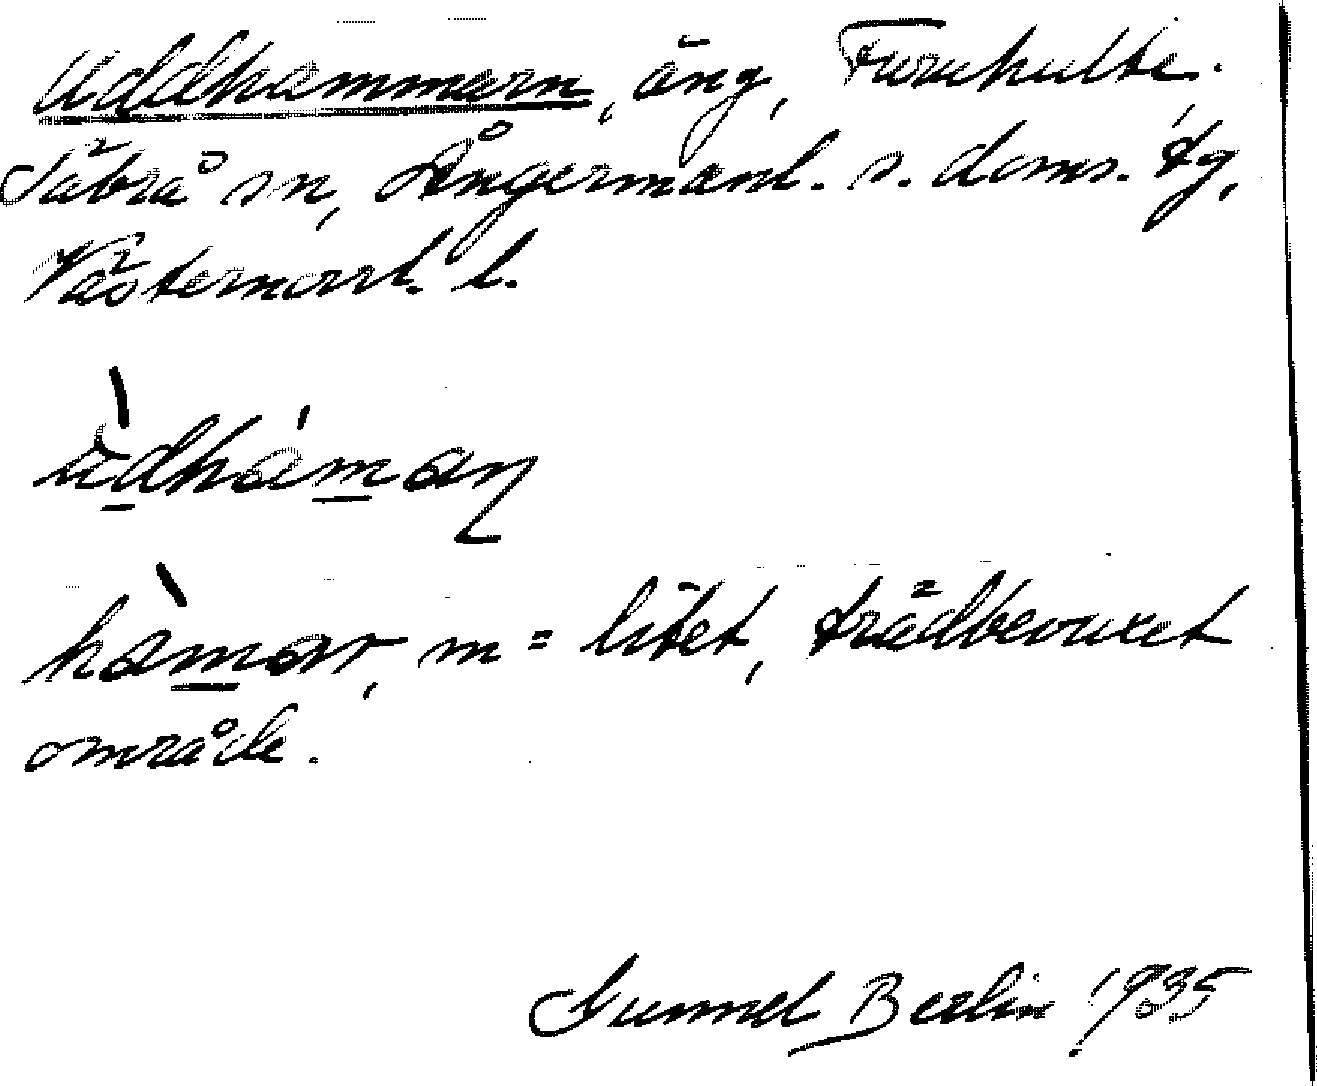 Uddhammarn, äng, Furuhulte.
Säbrå sn, Ångermanl. s. doms. tg,
Västernorrl. l.
ùdháman
hàmar, m = litet, trädbevuxet
område.
Gunnel Berlin 1935